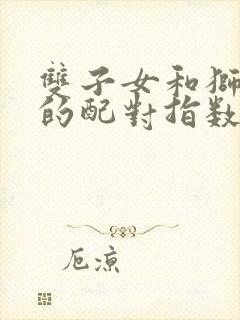 雙子女和獅
的配對指数
厄凉